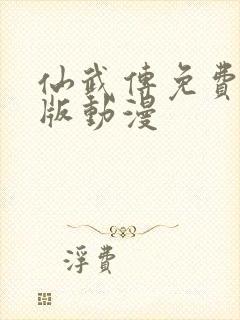 仙武傳免費
版動漫
浮費